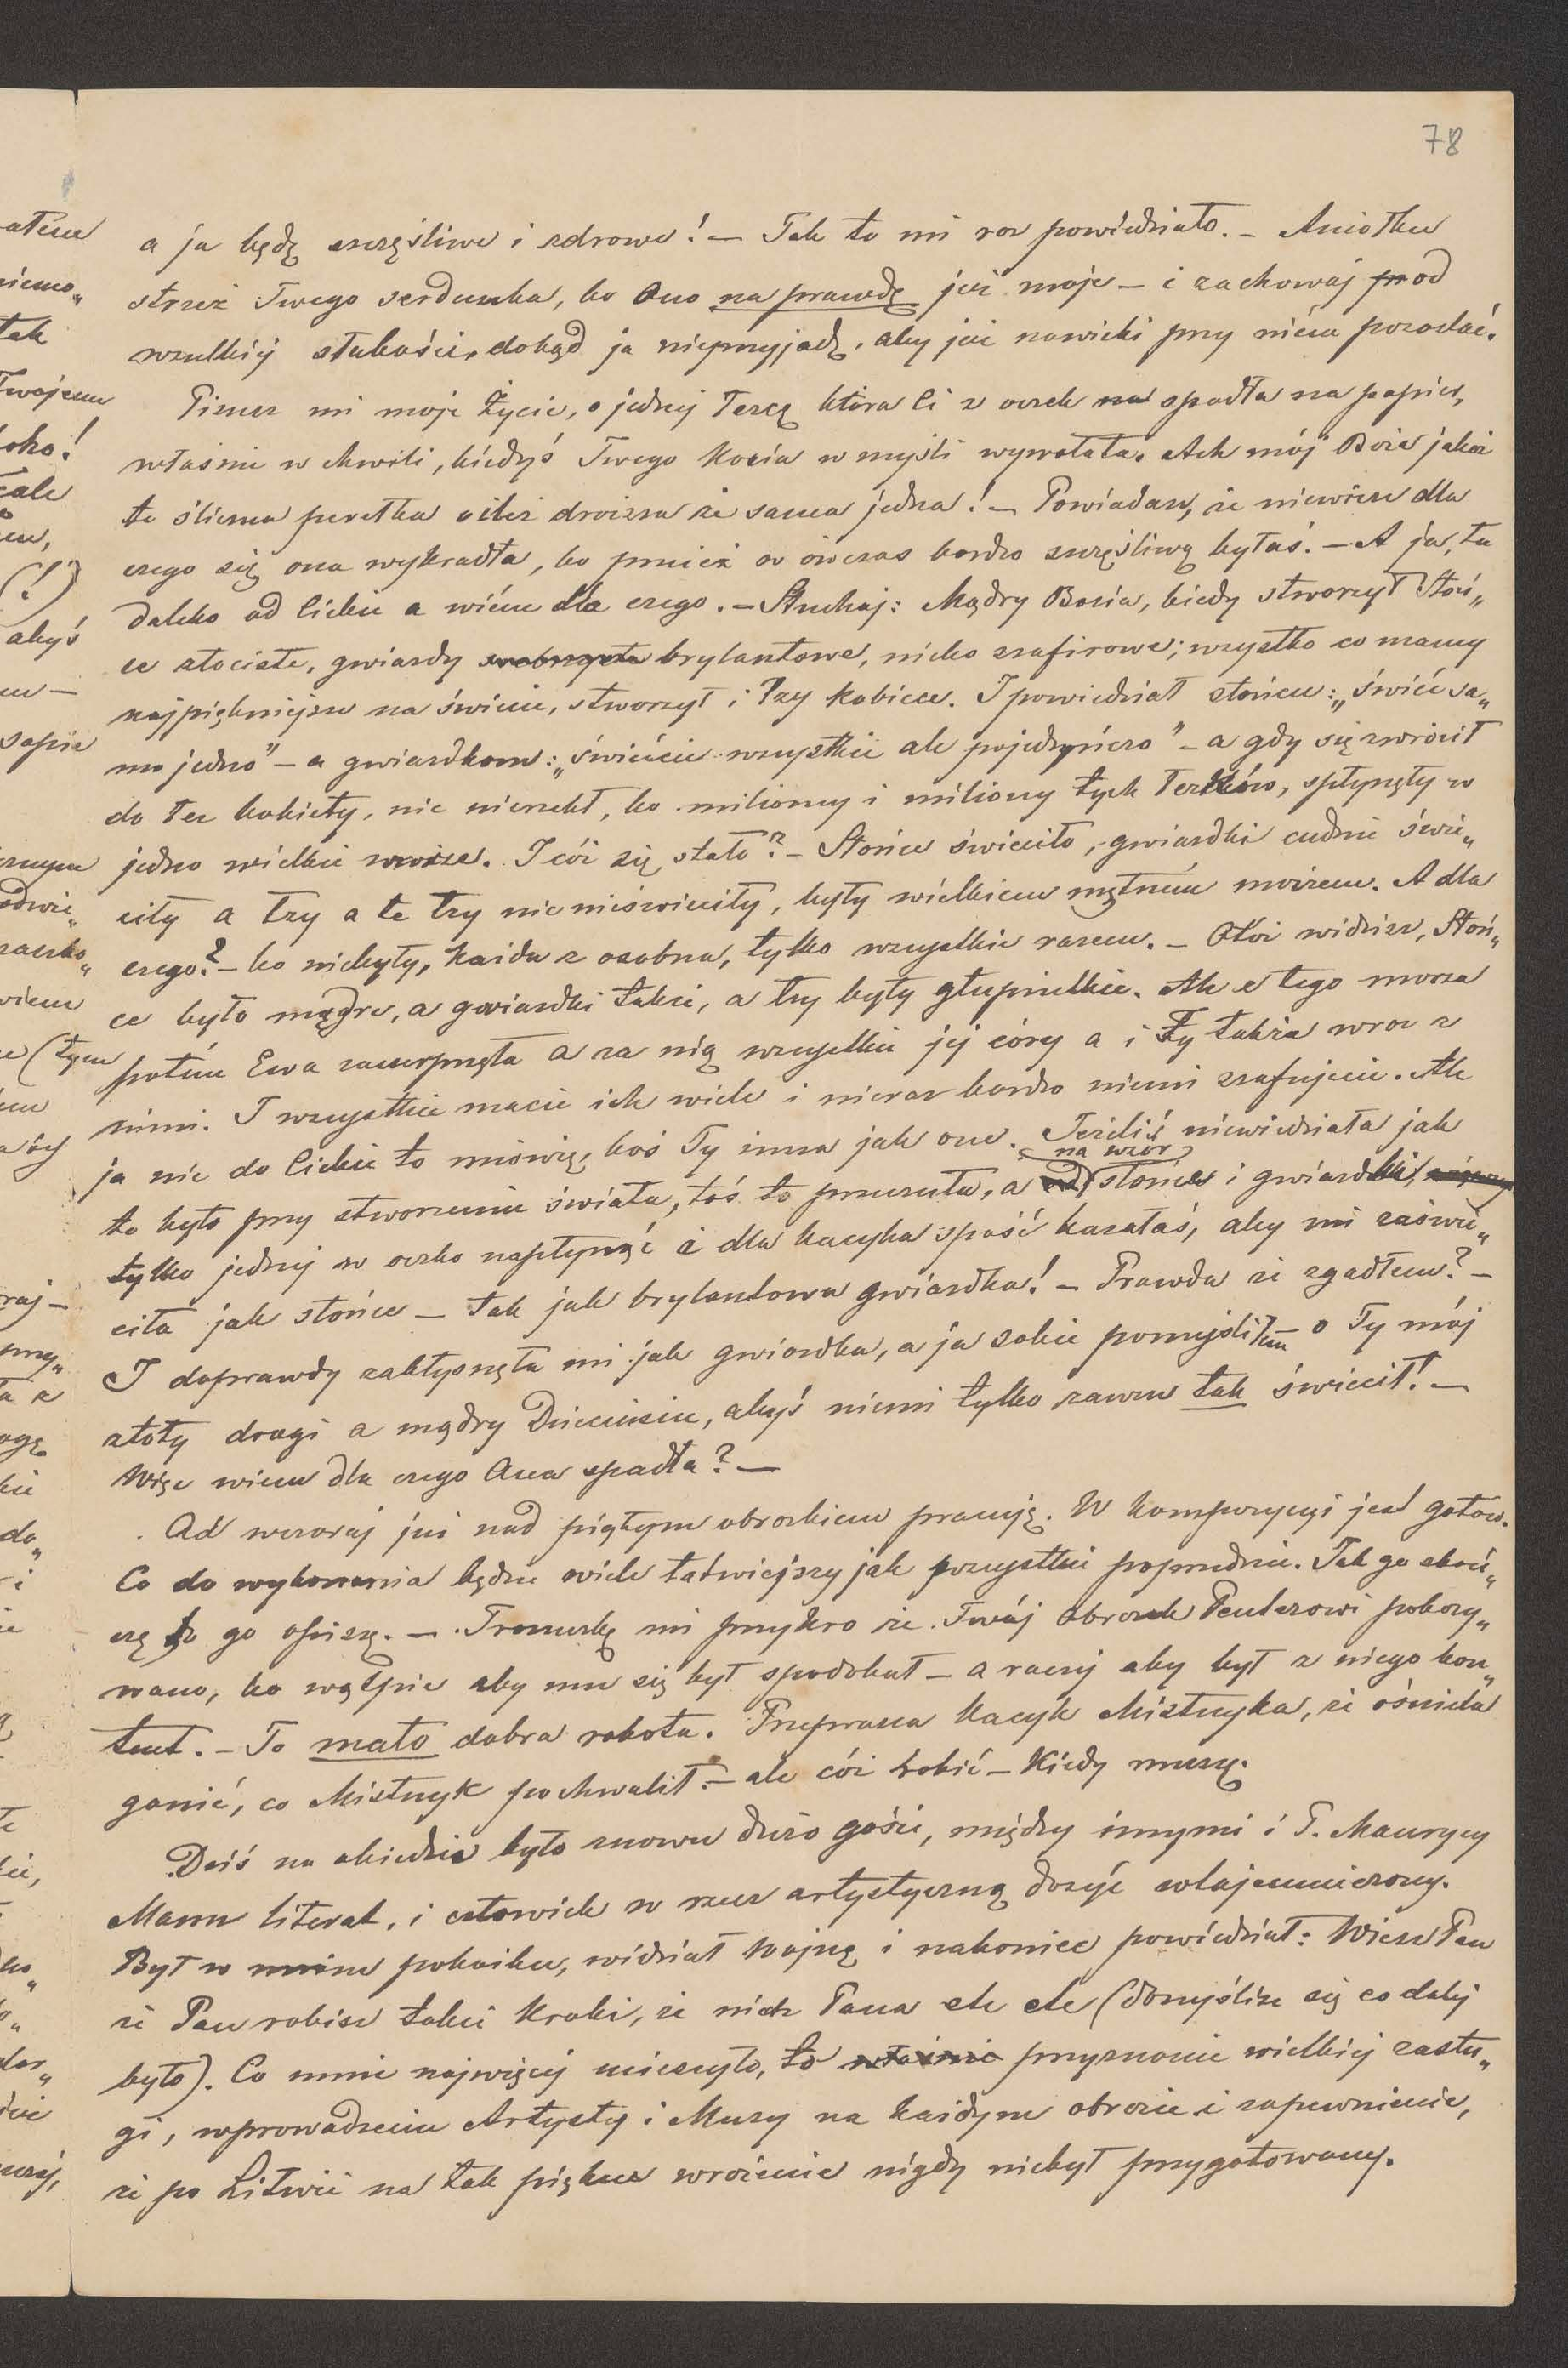 78
a ja będę szczęśliwe i zdrowe! — Tak to mi raz powiedziało. — Aniołku
strzeż Twego serduszka, bo Ono na prawdę już moje — i zachowaj od
wszelkiéj słabości, dokąd ja nieprzyjadę, aby już nawieki przy niém pozostać.
Piszesz mi moje Życie, o jednéj Łezce która Ci z oczek na spadła na papier,
właśnie w chwili, kiedyś Twego Kozia w myśli wywołała. Ach mój Boże jakaż
to śliczna perełka a ileż droższa że sama jedna! — Powiadasz, że niewiesz dla
czego się ona wykradła, bo przecież ow ówczas bardzo szczęśliwą byłaś. — A ja, tu
daleko od Ciebie a wiém dla czego. — Słuchaj: Mądry Bozia, kiedy stworzył Słoń„
ce złociste, gwiazdy brylantowe, niebo szafirowe; wszystko co mamy
najpiękniejsze na świecie, stworzył i łzy kobiece. I powiedział słońcu: „świeć sa„
mo jedno" — a gwiazdkom: „świećcie wszystkie ale pojedyńczo" — a gdy się zwrócił
do łez kobiety, nic nierzekł, bo miliony i miliony tych łezków, spłynęły w
jedno wielkie morze. I cóż się stało? — Słońce świeciło, gwiazdki cudnie świe„
ciły a łzy a te łzy nic nieświeciły, były wielkiem mętném morzem. A dla
czego? — bo niebyły, każda z osobna, tylko wszystkie razem. — Otóż widzisz, Słoń„
ce było mądre, a gwiazdki także, a łzy były głupiutkie. Ale z tego morza
potém Ewa zaczerpnęła a za nią wszystkie jéj córy a i Ty także wraz z
nimi. I wszystkie macie ich wiele i nieraz bardzo niemi szafujecie. Ale
ja nie do Ciebie to mówię, boś Ty inna jak one. Jeżeliś niewiedziała jak
na wzór
to było przy stworzeniu świata, toś to przeczuła, a słońca i gwiazdki,
tylko jednéj w oczko napłynąć i dla kacyka spaść kazałaś, aby mi zaświe„
ciła jak słońce — tak jak brylantowa gwiazdka! — Prawda że zgadłem? —
I doprawdy zabłysnęła mi jak gwiazdka, a ja sobie pomyśliłem — o Ty mój
złoty drogi a mądry Dzieciusiu, abyś niemi tylko zawsze tak świecił! —
Więc wiem dla czego Ona spadła? —
Od wczoraj już nad piątym obrazkiem pracuję. W kompozycyi jest gotow.
Co do wykonania będzie wiele łatwiejszy jak wszystkie poprzednie. Jak go skoń„
czę to go opiszę. — Troszeczkę mi przykro że Twój Obrazek Penterowi pokazy„
wano, bo wątpię aby mu się był spodobał — a raczéj aby był z niego kon„
tent. — To mało dobra robota. Przeprasza Kacyk Mistrzyka, że ośmiela
ganić, co Mistrzyk pochwalił — ale cóż robić — Kiedy muszę.
Dziś na obiedzie było znowu dużo gości, między innymi i P. Maurycy
Mann literat, i człowiek w rzecz artystyczną dosyć wtajemniczony.
Był w moim pokoiku, widział Wojnę i nakoniec powiedział: Wiesz Pan
że Pan robisz takie kroki, że niech Pana etc etc (domyślisz się co daléj
było). Co mnie najwięcéj ucieszyło, to właśnie przyznanie wielkiéj zasłu„
gi, wprowadzenie Artysty i Muzy na każdym obrazie i zapewnienie,
że po Litwie na tak piękne wrażenie nigdy niebył przygotowany.